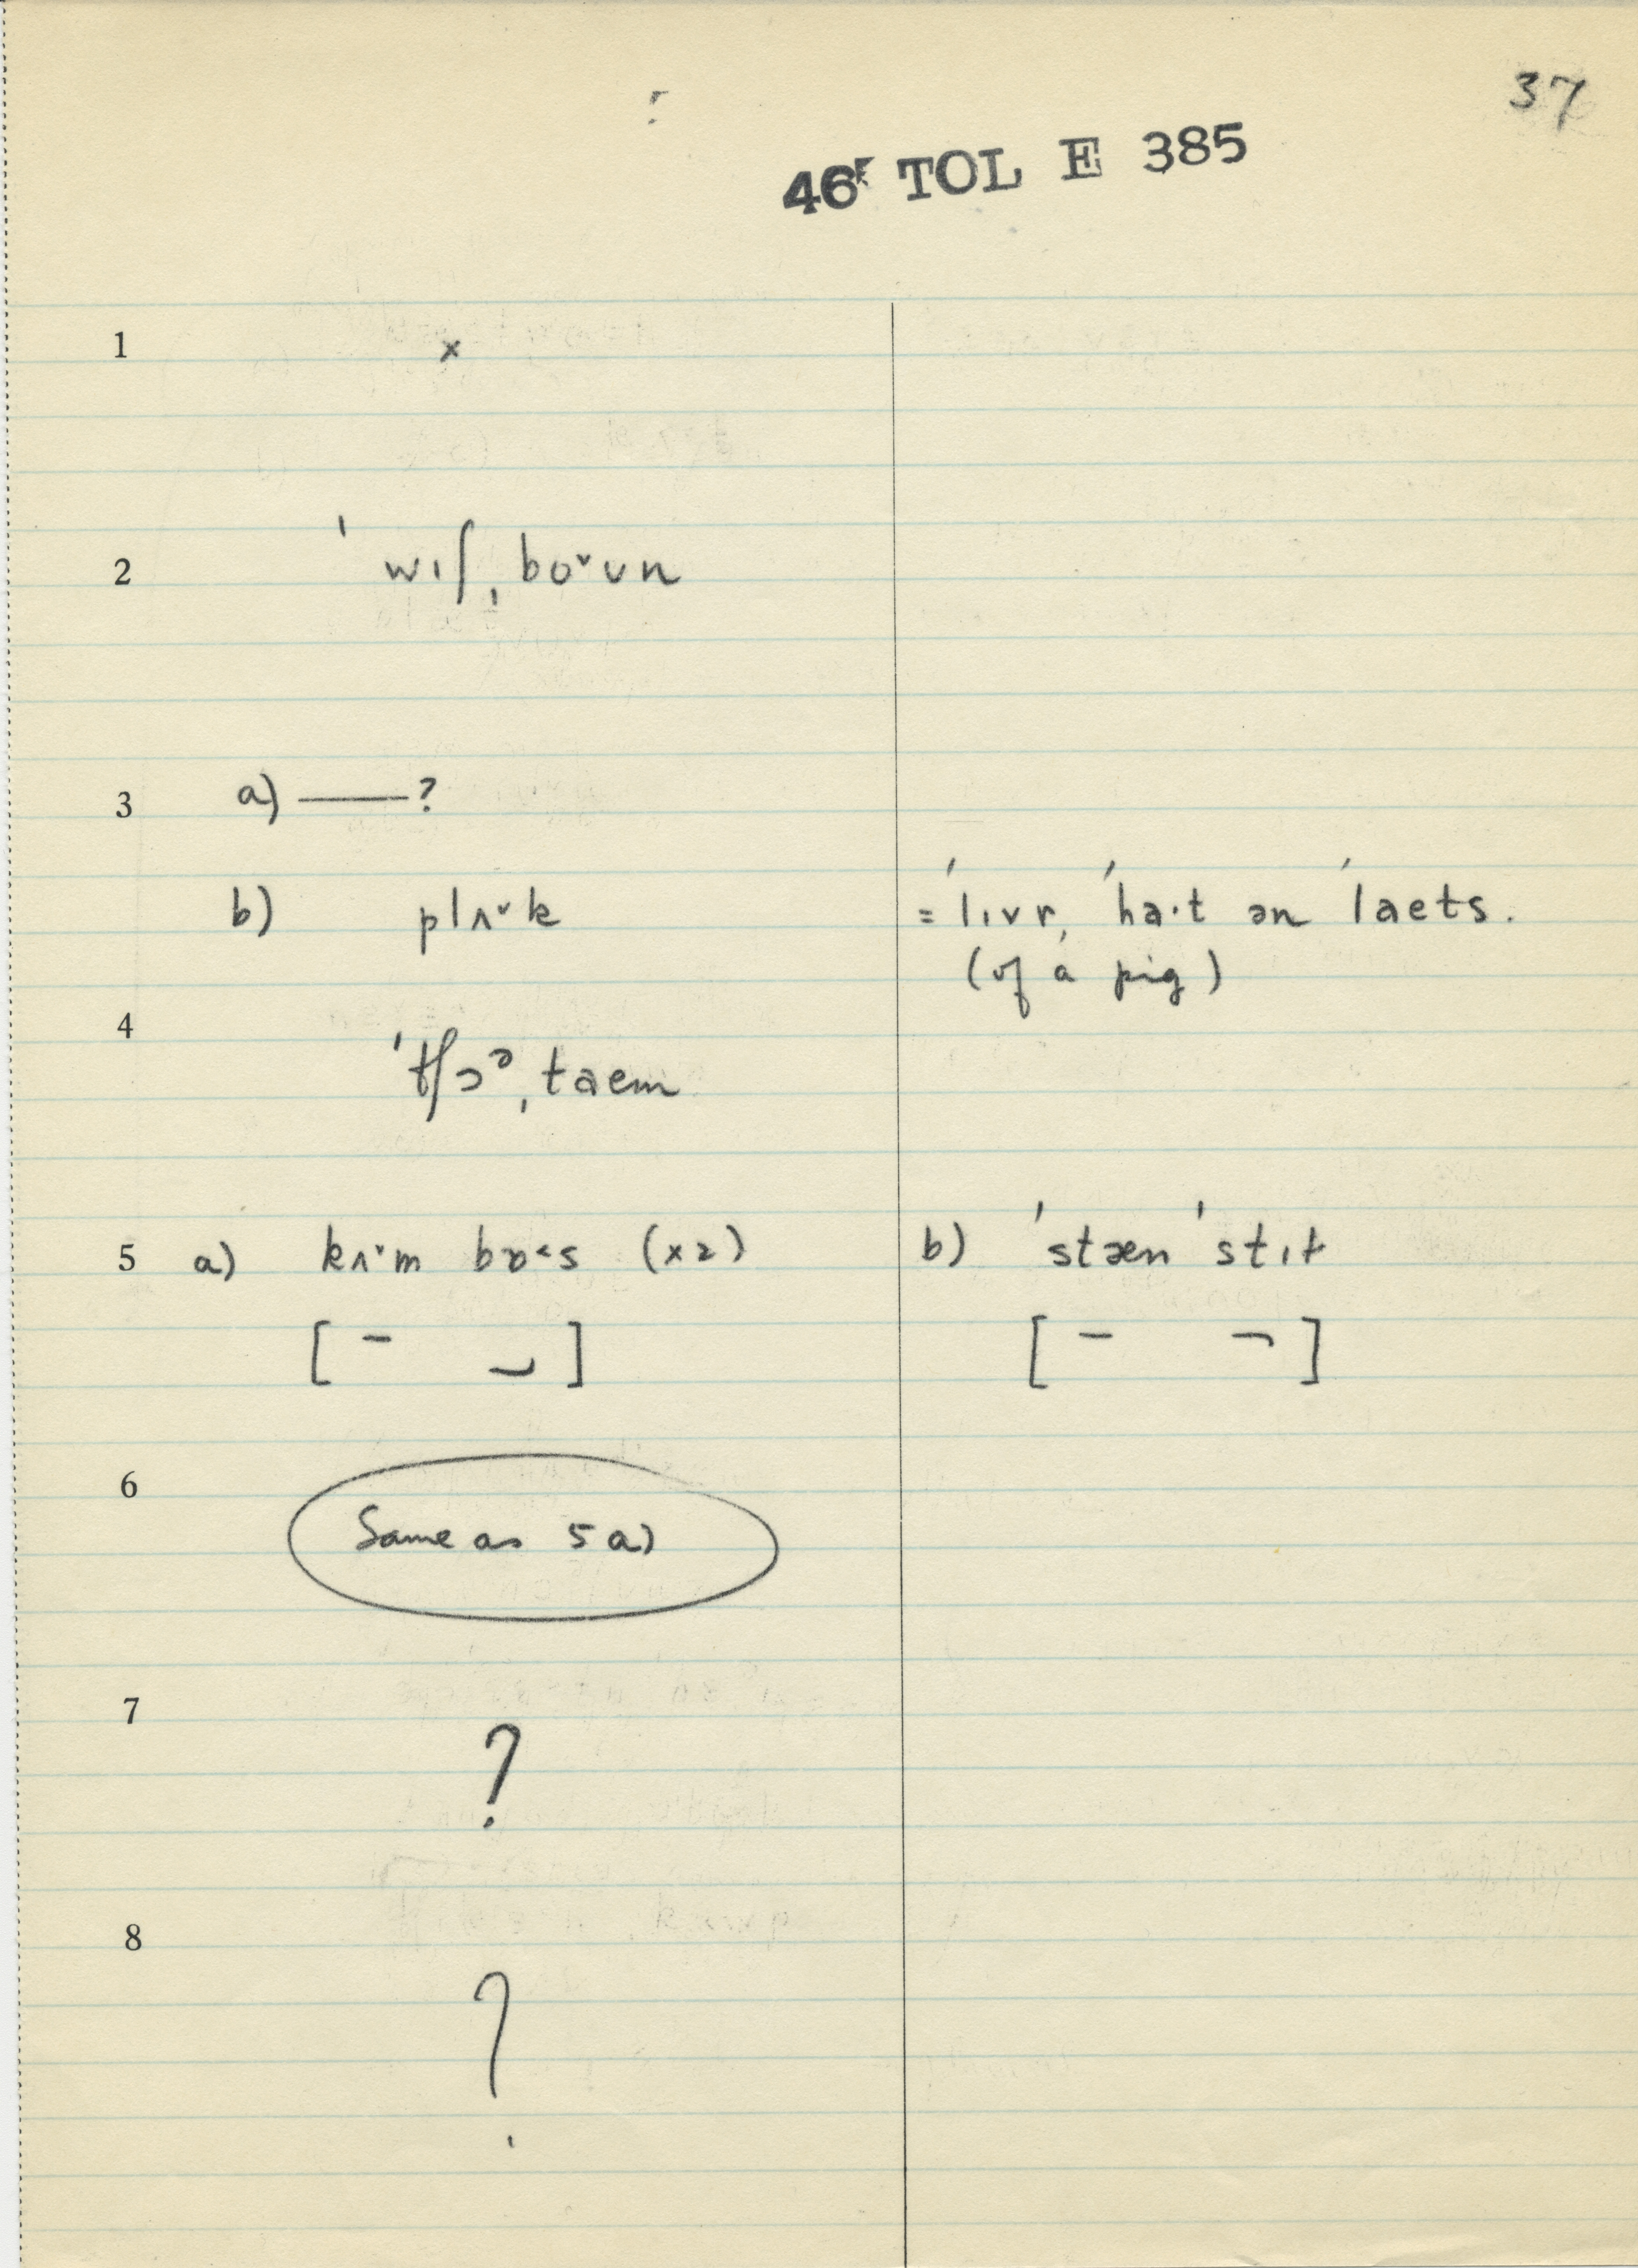 37
46 TOL E 385
1 x
2 ˈwɪʃˌboˇʊn
3 a) ——?
b) plʌˇk = ˈlɪvr, ˈha·t ən ˈlaets.
(of a pig)
4 ˈtʃɔᵊˌtaem
5 a) kʌˇm bɒ˂s (x2) b) ˈstæn ˈstɪt
6 Same as 5 a)
7 ?
8 ?